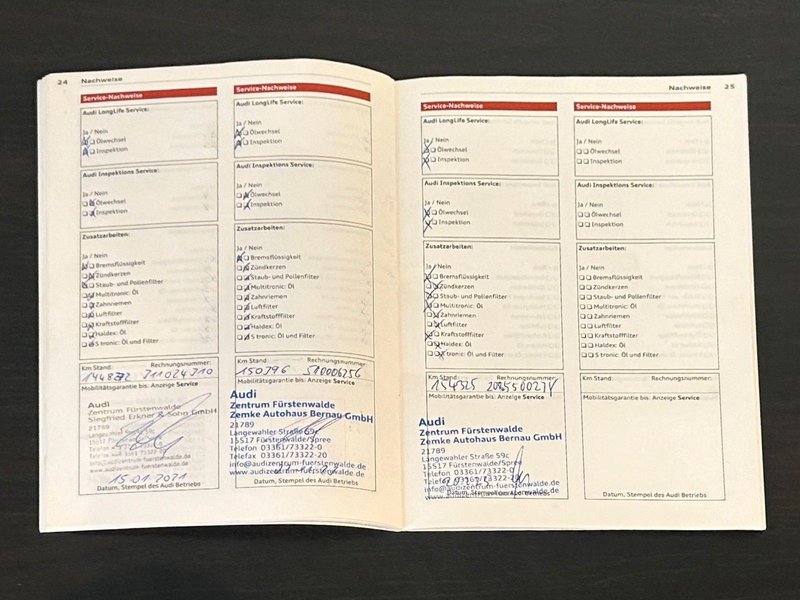 24 Nachweise
Service-Nachweise
Audi LongLife Service:
Ja / Nein
Ölwechsel
Inspektion
Audi Inspektions Service:
Ja / Nein
Ölwechsel
Inspektion
Zusatzarbeiten:
Ja / Nein
Bremsflüssigkeit
Zündkerzen
Staub- und Pollenfilter
Multitronic: Öl
Zahnriemen
Luftfilter
Kraftstofffilter
Haldex: Öl
S tronic: Öl und Filter
Km Stand: Rechnungsnummer:
Mobilitätsgarantie bis: Anzeige Service
Audi
Zentrum Fürstenwalde
Siegfried Erkner & Sohn GmbH
21789
15.01.2021
Datum, Stempel des Audi Betriebs
Service-Nachweise
Audi LongLife Service:
Ja / Nein
Ölwechsel
Inspektion
Audi Inspektions Service:
Ja / Nein
Ölwechsel
Inspektion
Zusatzarbeiten:
Ja / Nein
Bremsflüssigkeit
Zündkerzen
Staub- und Pollenfilter
Multitronic: Öl
Zahnriemen
Luftfilter
Kraftstofffilter
Haldex: Öl
S tronic: Öl und Filter
Km Stand: Rechnungsnummer:
150796 510006256
Mobilitätsgarantie bis: Anzeige Service
Audi
Zentrum Fürstenwalde
Zemke Autohaus Bernau GmbH
21789
Langewahler Straße 59c
15517 Fürstenwalde/Spree
Telefon 03361/73322-0
Telefax 03361/73322-20
info@audizentrum-fuerstenwalde.de
www.audizentrum-fuerstenwalde.de
Datum, Stempel des Audi Betriebs
Nachweise 25
Service-Nachweise
Audi LongLife Service:
Ja / Nein
Ölwechsel
Inspektion
Audi Inspektions Service:
Ja / Nein
Ölwechsel
Inspektion
Zusatzarbeiten:
Ja / Nein
Bremsflüssigkeit
Zündkerzen
Staub- und Pollenfilter
Multitronic: Öl
Zahnriemen
Luftfilter
Kraftstofffilter
Haldex: Öl
S tronic: Öl und Filter
Km Stand: Rechnungsnummer:
154325
Mobilitätsgarantie bis: Anzeige Service
Audi
Zentrum Fürstenwalde
Zemke Autohaus Bernau GmbH
21789
Langewahler Straße 59c
15517 Fürstenwalde/Spree
Telefon 03361/73322-0
Telefax 03361/73322-20
info@audizentrum-fuerstenwalde.de
www.audizentrum-fuerstenwalde.de
Datum, Stempel des Audi Betriebs
Service-Nachweise
Audi LongLife Service:
Ja / Nein
Ölwechsel
Inspektion
Audi Inspektions Service:
Ja / Nein
Ölwechsel
Inspektion
Zusatzarbeiten:
Ja / Nein
Bremsflüssigkeit
Zündkerzen
Staub- und Pollenfilter
Multitronic: Öl
Zahnriemen
Luftfilter
Kraftstofffilter
Haldex: Öl
S tronic: Öl und Filter
Km Stand: Rechnungsnummer:
Mobilitätsgarantie bis: Anzeige Service
Datum, Stempel des Audi Betriebs